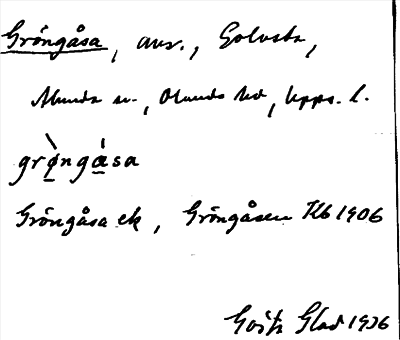 Gröngåsa, avs., Golvsta,
Munda sn., Olands hd, Upps. l.
grö̀ngåsa
Gröngåsa ek, Gröngåsen Kb 1906
Gösta Glad 1936